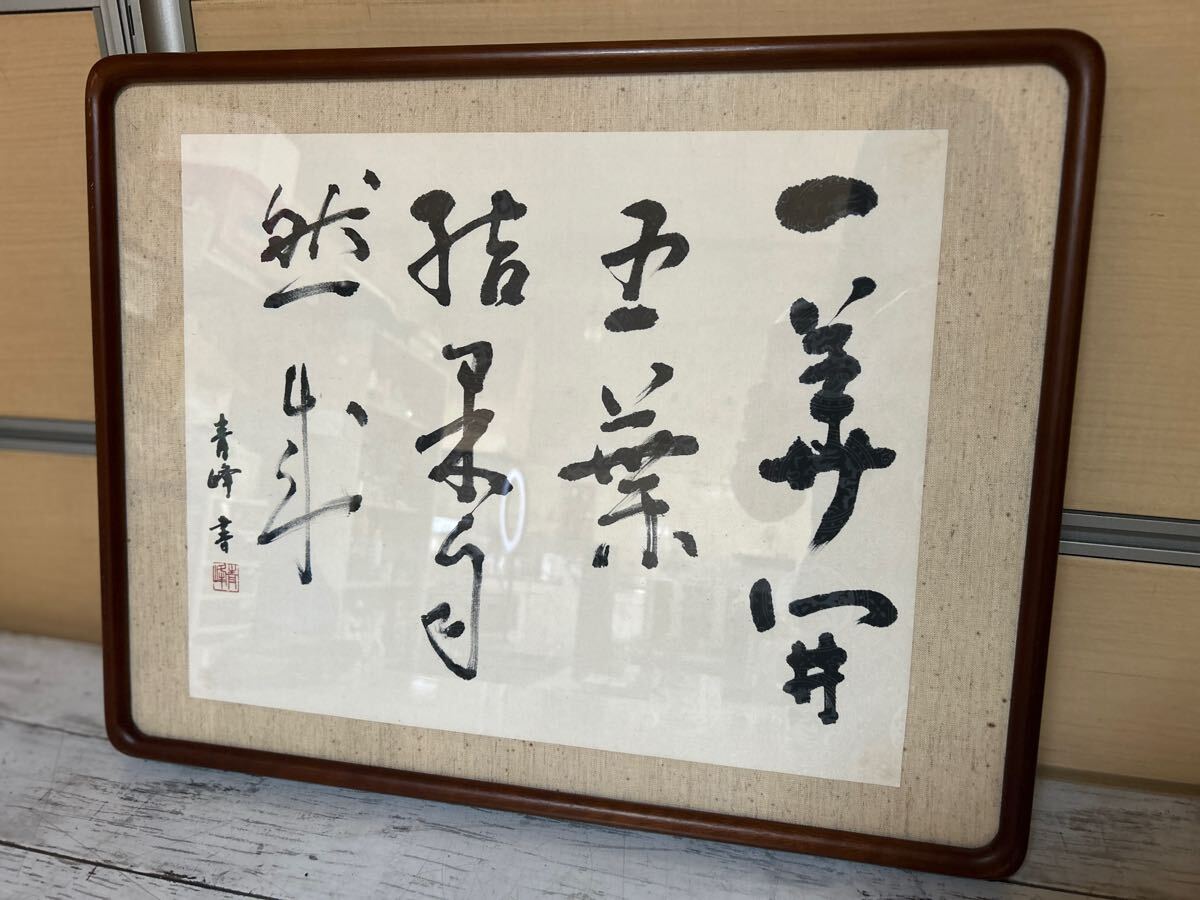 一華開
五葉
結果自
然成
青峰書
青峰